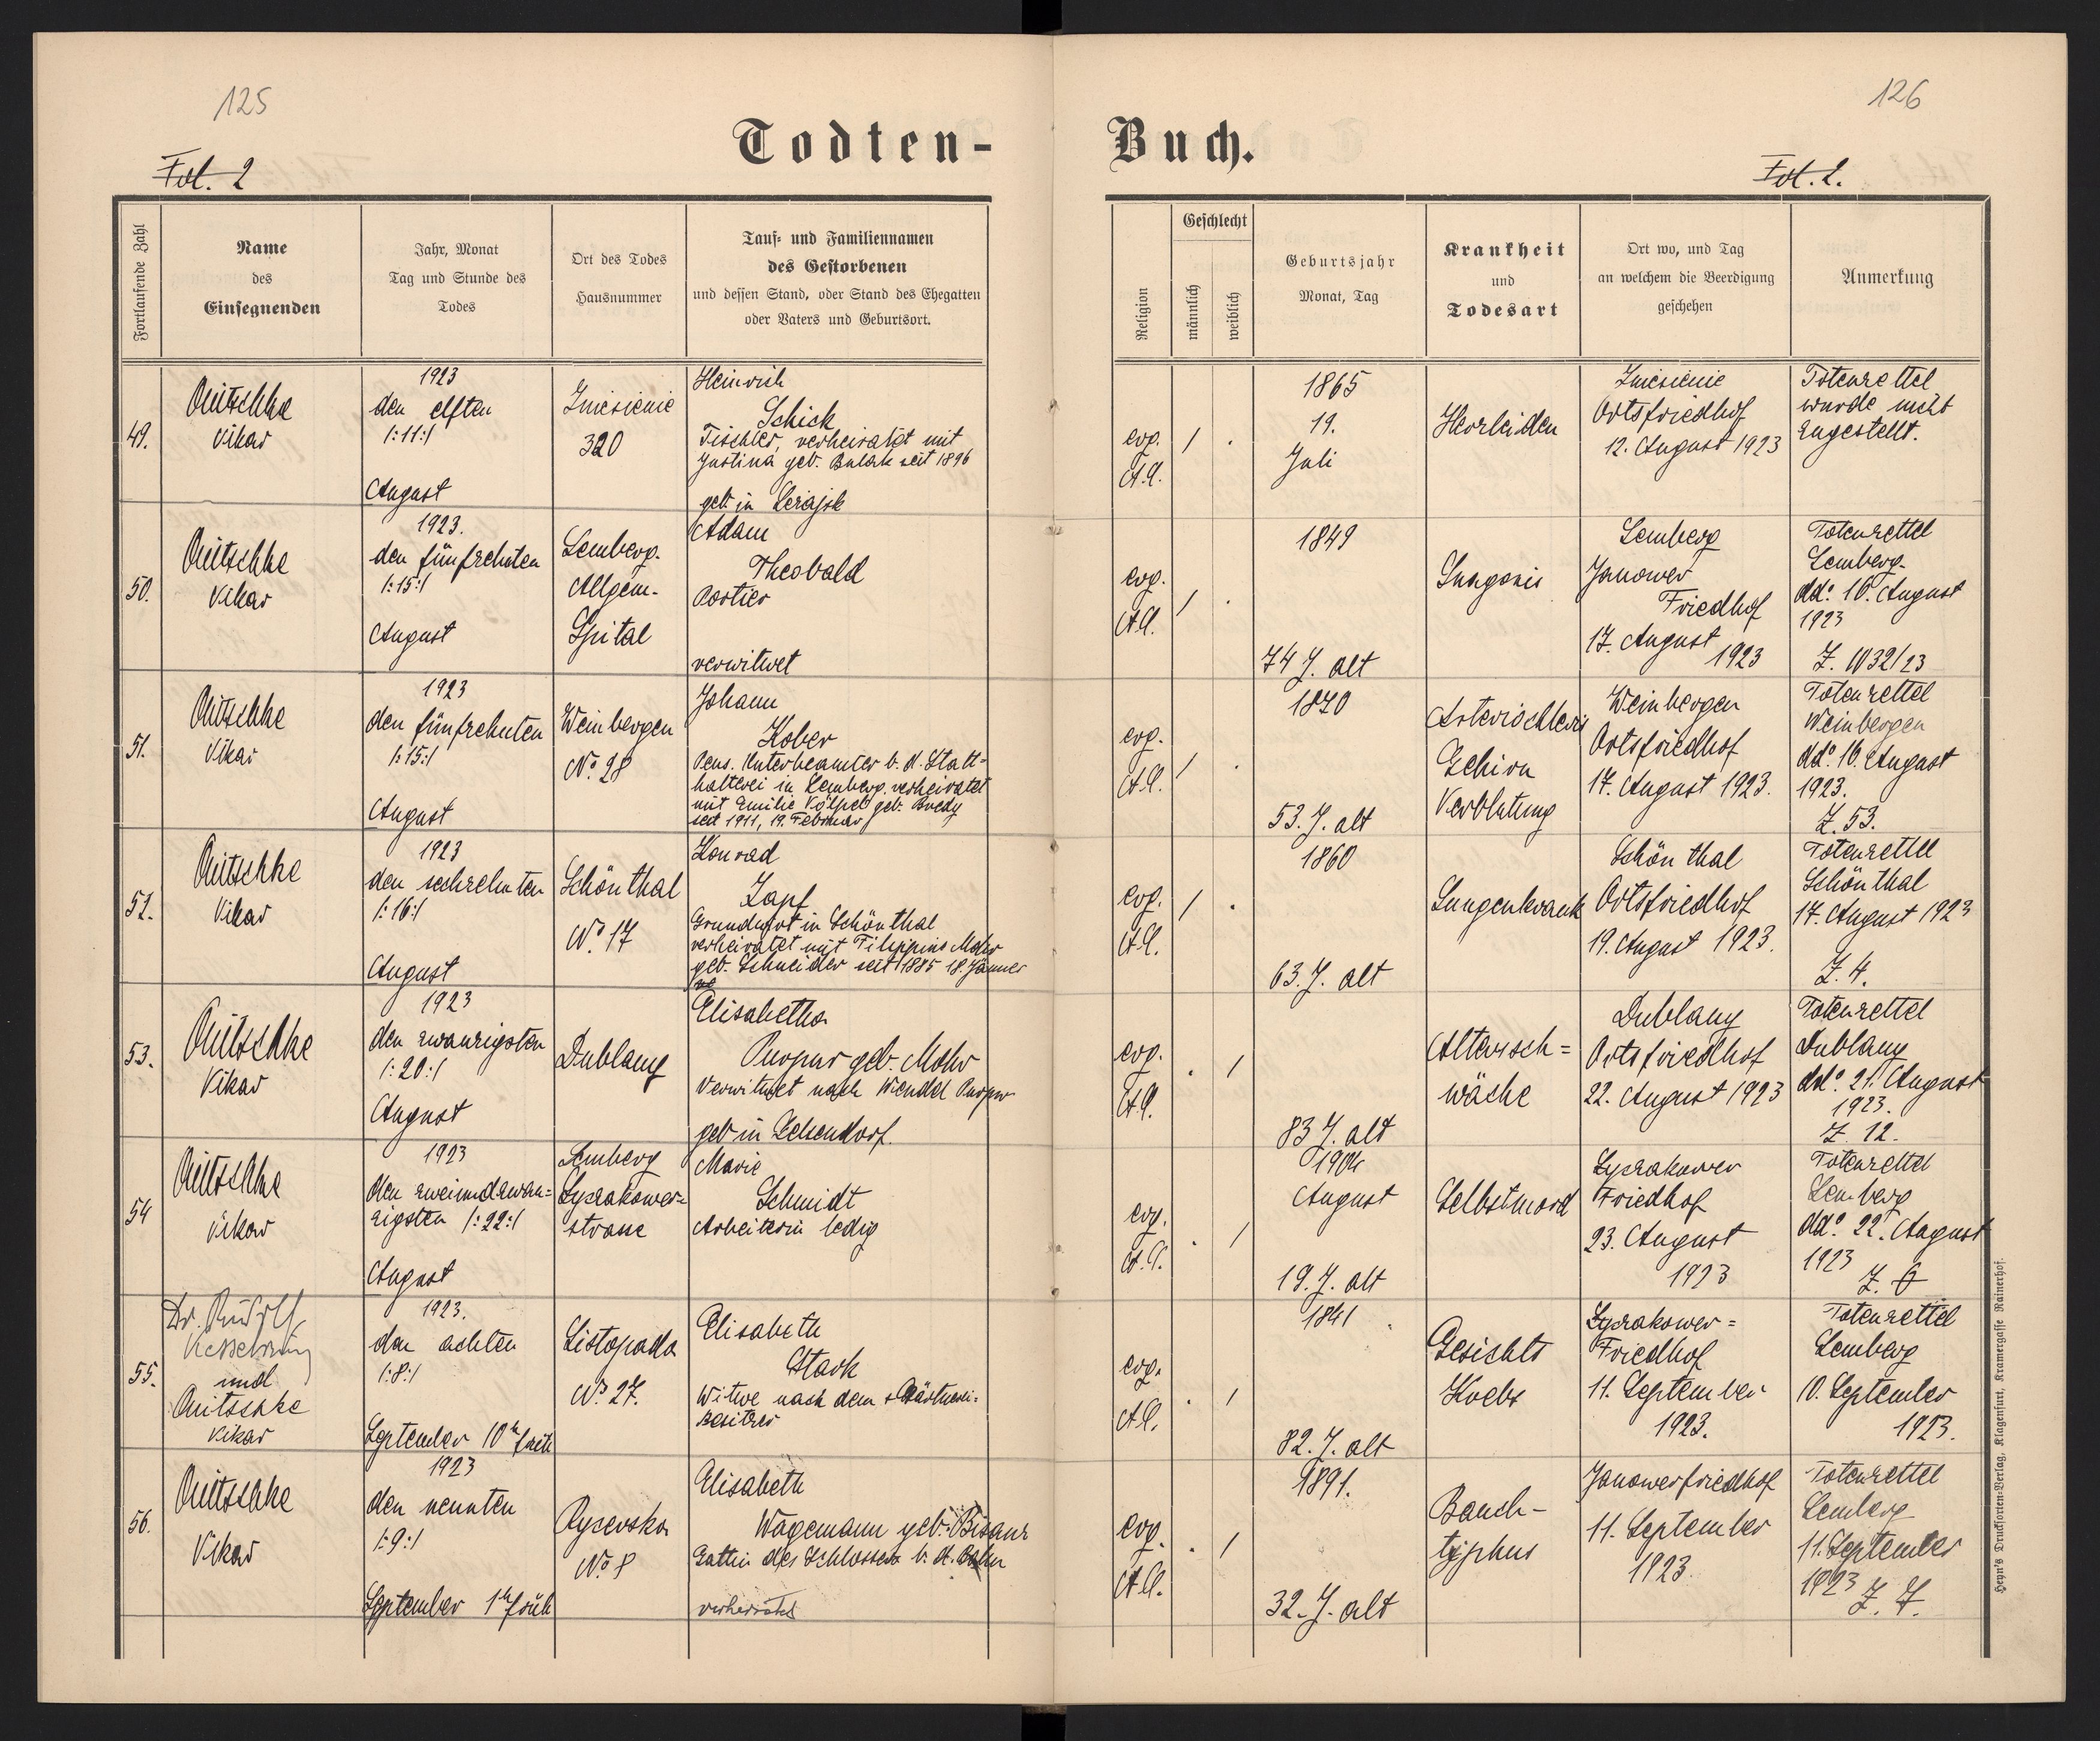 125
126
Todten-
Buch.
Fol. 2
Fol. 2.
Fortlaufende Zahl
Name
des
Einsegnenden
Jahr, Monat
Tag und Stunde des
Todes
Ort des Todes
Hausnummer
Tauf- und Familiennamen
des Gestorbenen
und dessen Stand, oder Stand des Ehegatten
oder Vaters und Geburtsort.
Religion
Geschlecht
männlich
weiblich
Geburtsjahr
Monat, Tag
Krankheit
und
Todesart
Ort wo, und Tag
an welchem die Beerdigung
geschehen
Anmerkung
49.
Vikar
1923
den elften
/:11:/
August
Zniesienie
320
Heinrich
Schick
Tischler, verheiratet mit
Justina geb. Bulak seit 1896
geb in Lezajsk
evg.
A.C.
/ .
1865
19.
Juli
Herzleiden
Zniesienie
Ortsfriedhof
12. August 1923
Totenzettel
wurde nicht
zugestellt.
50.
Vikar
1923.
den fünfzehnten
/:15:/
August
Lemberg.
Allgem.
Spital
Adam
Theobald
Portier
verwitwet
evg.
A.C.
/ .
1849
74 J. alt
Lemberg
Janower
Friedhof
17. August
1923
Totenzettel
Lemberg.
dd. 16. August
1923
51.
Vikar
1923
den fünfzehnten
/:15:/
August
Weinbergen
No. 28
Johann
Kober
Pens. Unterbeamter b. d. Statt-
halterei in Lemberg. verheiratet
mit Emilie geb. Bredy
seit 1911, 19. Februar
evg.
A.C.
/ .
1870
53. J. alt
Gehirn
Verblutung
Weinbergen
Ortsfriedhof
17. August 1923.
Totenzettel
Weinbergen
dd. 16. August
1923.
Z. 53.
52.
Vikar
1923
den sechzehnten
/:16:/
August
Schönthal
No. 17
Konrad
Zapf
Grundwirt in Schönthal
verheiratet mit Filippine Mohr
geb. Schneider seit 1885 18. Jänner
evg.
A.C.
/ .
1860
63. J. alt
Lungenkrank
Schönthal
Ortsfriedhof
19. August 1923.
Totenzettel
Schönthal
17. August 1923
Z. 4.
53.
Vikar
1923
den zwanzigsten
/:20:/
August
Dublany
Elisabetha
geb. Mohr
Verwitwet nach Wendel
geb in
evg.
A.C.
. /
83 J. alt
Altersch=
wäche
Dublany
Ortsfriedhof
22. August 1923
Totenzettel
Dublany
dd. 21. August
1923.
Z. 12.
54
Vikar
1923
den zweiundzwan=
zigsten /:22:/
August
Lemberg
Lyczakower=
strasse
Marie
Schmidt
Arbeiterin ledig
evg.
A.C.
. /
1904
August
19. J. alt
Selbstmord
Lyczakower
Friedhof
23. August
1923
Totenzettel
Lemberg
dd. 22. August
1923
Z. 6
55.
Dr. Rudolf
Kesselring
und
Vikar
1923.
den achten
/:8:/
September 10 h früh
Listopada
No. 27.
Elisabeth
Stark
Witwe nach dem + Gärtnerei-
besitzer
evg.
A.C.
. /
1841
82. J. alt
Gesichts
Krebs
Lyczakower=
Friedhof
11. September
1923.
Totenzettel
Lemberg
10. September
1923.
56.
Vikar
1923
den neunten
/:9:/
September 1 h früh
No. 8
Elisabeth
Wagemann geb. Bisanz
Gattin des Schlossers b. d. Bahn
verheiratet
evg.
A.C.
. /
1891.
32. J. alt
Bauch-
typhus
Janowerfriedhof
11. September
1923.
Totenzettel
Lemberg
11. September
1923
Z. 7.
Heyn's Drucksorten-Verlag, Klagenfurt, Kramergasse Rainerhof.